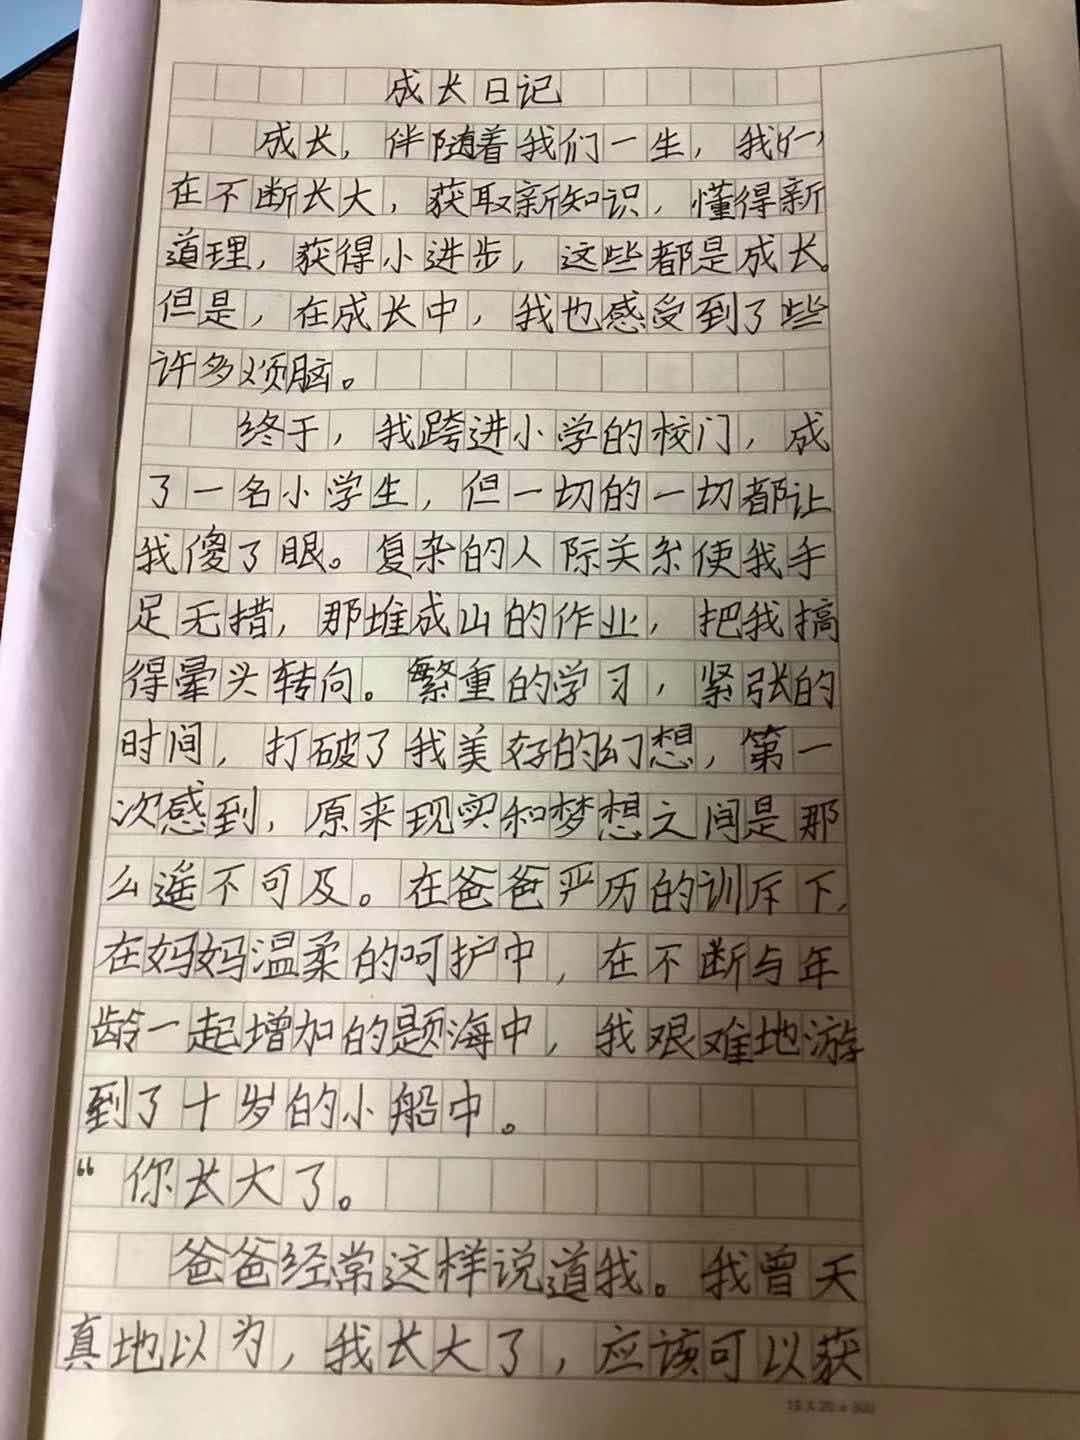 成长日记
成长，伴随着我们一生，我们
在不断长大，获取新知识，懂得新
道理，获得小进步，这些都是成长。
但是，在成长中，我也感受到了些
许多烦脑。
终于，我跨进小学的校门，成
了一名小学生，但一切的一切都让
我傻了眼。复杂的人际关系使我手
足无措，那堆成山的作业，把我搞
得晕头转向。繁重的学习，紧张的
时间，打破了我美好的幻想，第一
次感到，原来现实和梦想之间是那
么遥不可及。在爸爸严历的训斥下，
在妈妈温柔的呵护中，在不断与年
龄一起增加的题海中，我艰难地游
到了十岁的小船中。
“你长大了。
爸爸经常这样说道我。我曾天
真地以为，我长大了，应该可以获
15×20=300